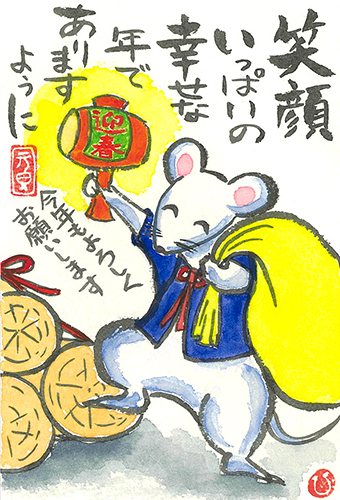 笑顔
いっぱいの
幸せな
年で
あります
ように
迎春
今年もよろしく
お願いします